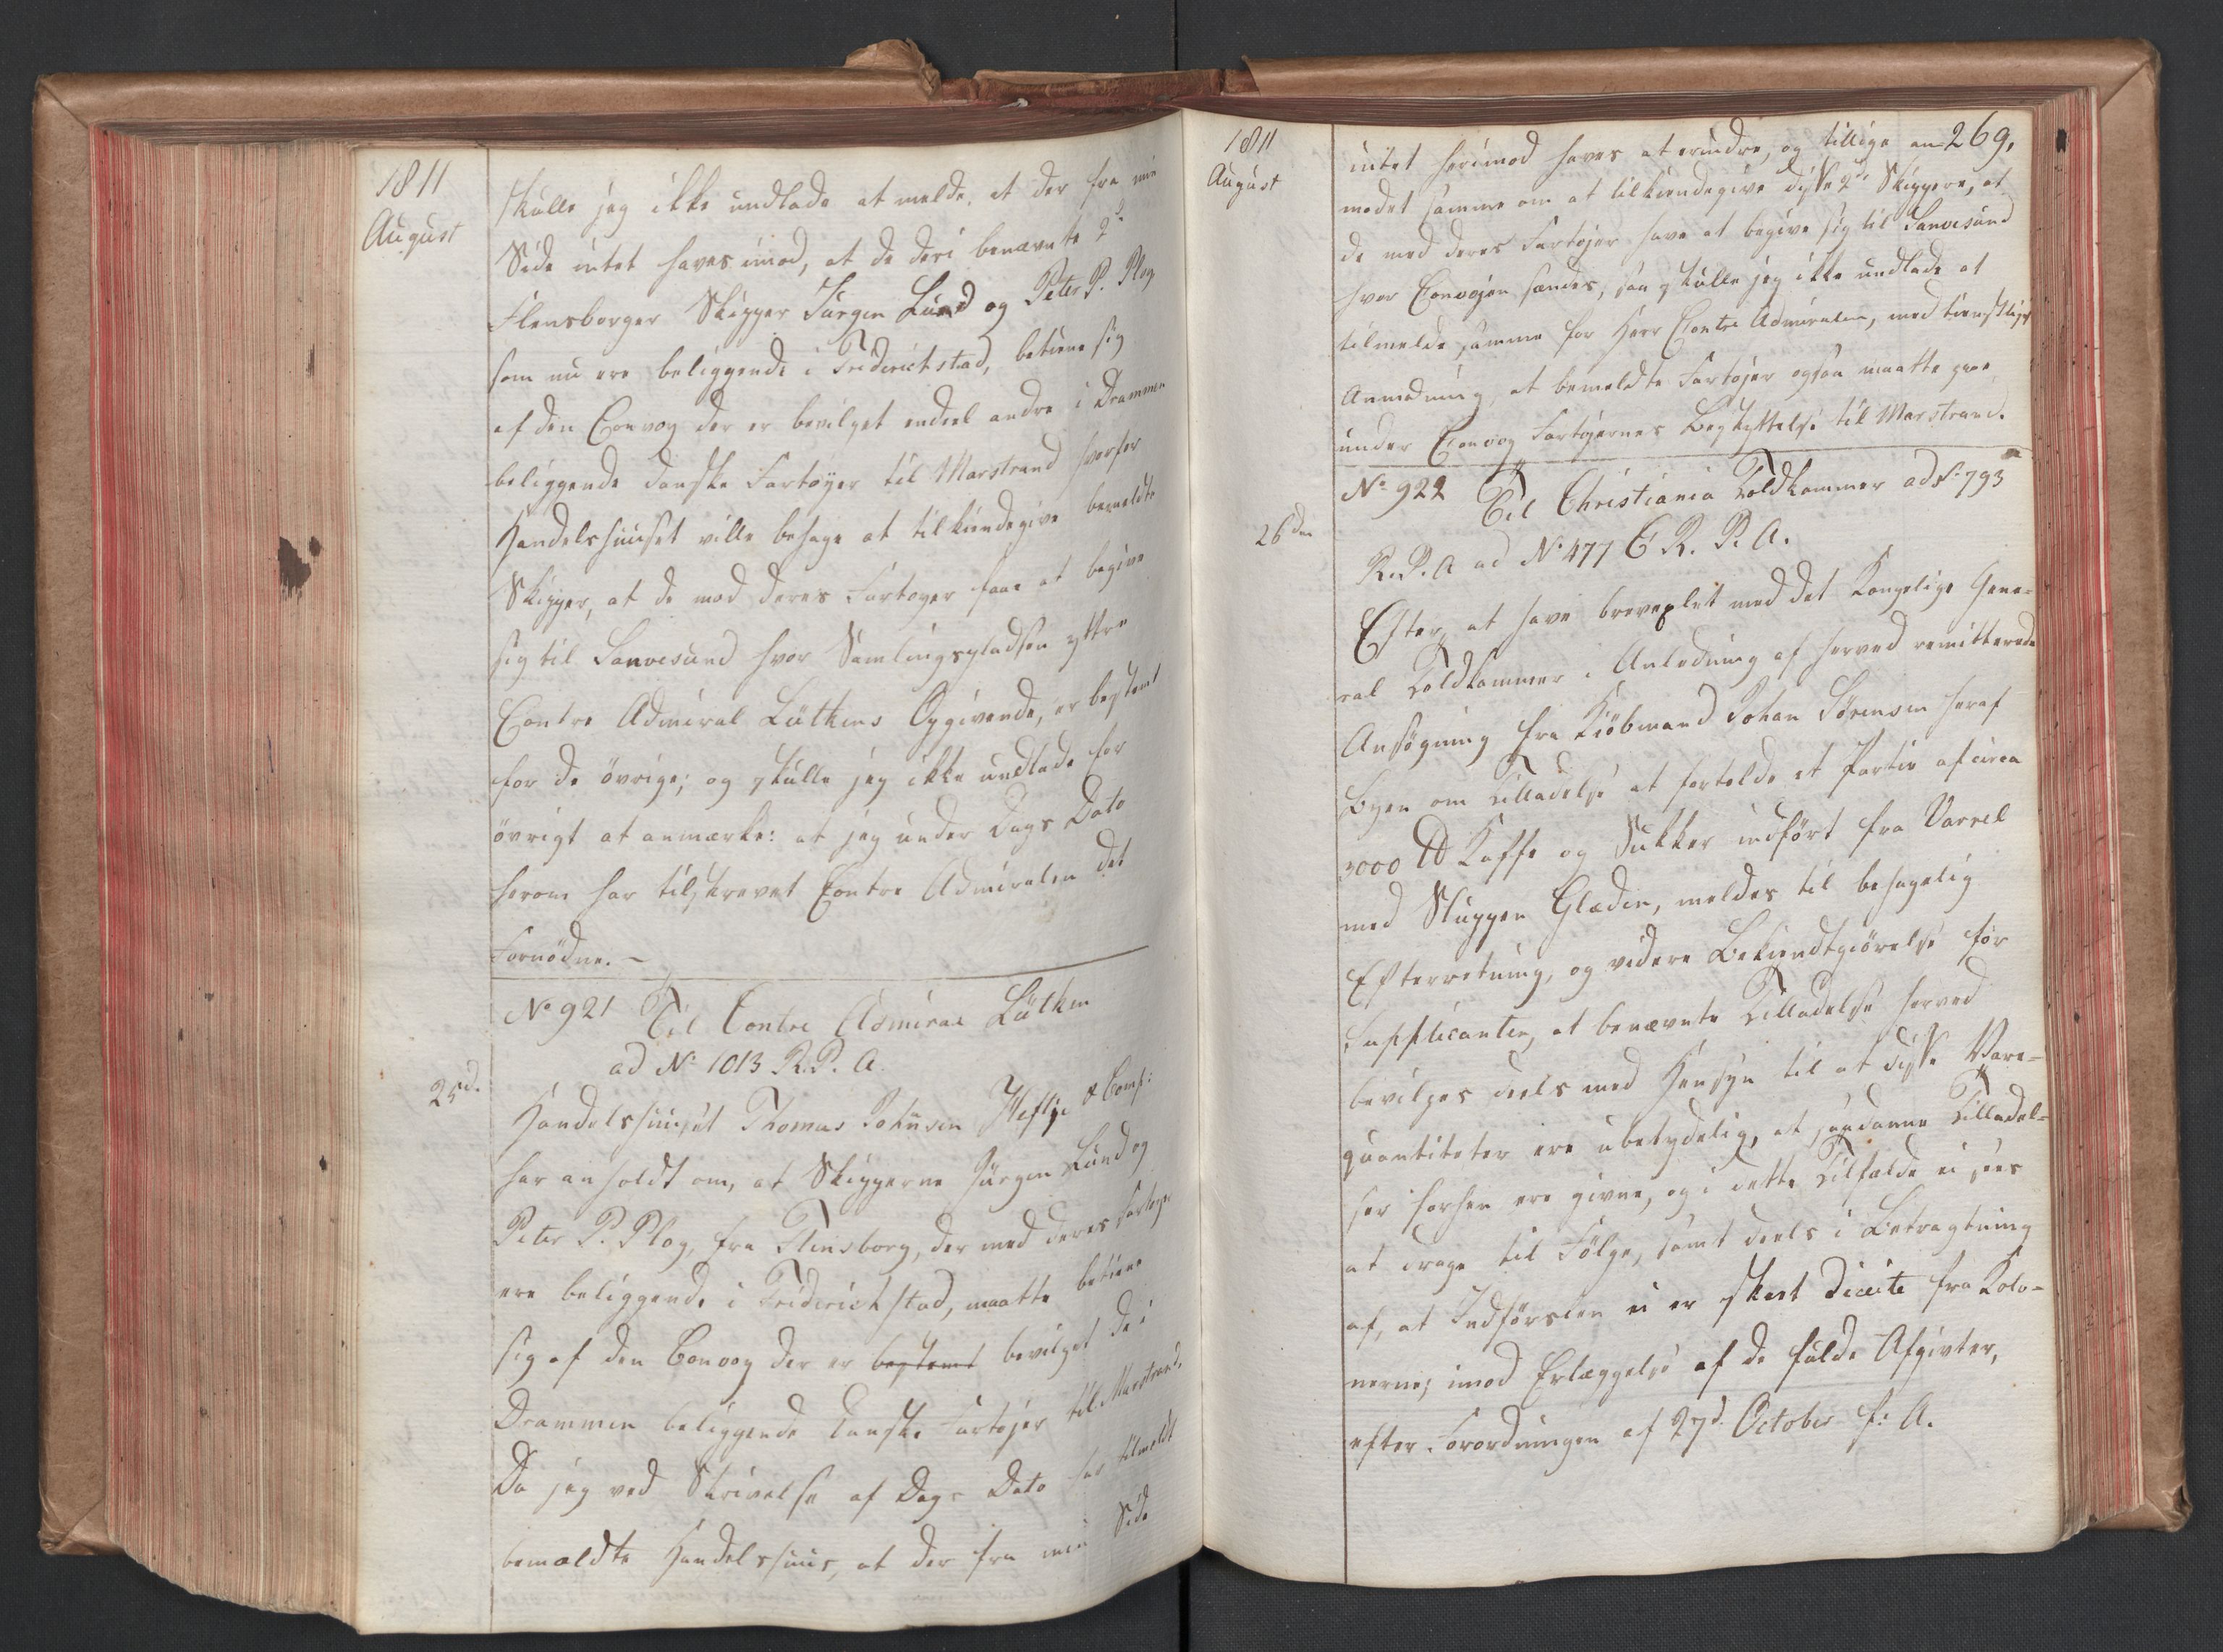 1811
August
skulle jeg ikke undlade at melde, at der fra min
Side intet haves imod, at de deri benævnte 2de
Flensborger Skipper Jürgen Lund og Peter P. Plog
som nu ere beliggende i Friderichstad, betiene sig
af den Convoy der er bevilget endeel andre i Drammen
beliggende danske Fartøyer til Marstrand hvorfor
Handelshuuset ville behage at tilkiendegive bemeldte
Skipper, at de med deres Fartøyer faae at begive
sig til Sanvesund hvor Samlingspladsen efter
Contre Admiral Lütkens Opgivende, er bestemt
for de øvrige; og skulle jeg ikke undlade for
øvrigt at anmærke: at jeg under Dags Dato
herom har tilskrevet Contre Admiralen det
Fornødne. –
No 921 Til Contre Admiral Lütken
ad No 1013 R. P. A.
25d.
Handelshuuset Thomas Johnsen Heftye & Comp:
har anholdt om, at Skipperne Jürgen Lund og
Peter P. Plog, fra Flensborg, der med deres Fartøyer
ere beliggende i Friderichstad, maatte betiene
sig af den Convoy der er bestemt bevilget de i
Drammen beliggende danske Fartøjer til Marstrand.
Da jeg ved Skrivelse af Dags Dato har tilmeldt
bemældte Handelshuus, at der fra min Side
1811
August
269.
intet herimod haves at erindre, og tillige an-
modet samme om at tilkiendegive disse 2de Skippere, at
de med deres Fartøjer have at begive sig til Sanvesund
hvor Convojen samles, saa skulle jeg ikke undlade at
tilmelde samme for Herr Contre Admiralen, med tienstligst
Anmodning, at bemeldte Fartøjer ogsaa maatte gaae
under Convoy Fartøjernes Beskyttelse til Marstrand.
26den
No 922 Til Christiania Toldkammer ad No 793
R. P. A ad No 477 C R. P. A.
Efter at have brevexlet med det Kongelige Gene-
ral Toldkammer i Anledning af herved remitterede
Ansøgning fra Kiöbmand Johan Sørensen heraf
Byen om Tilladelse at fortolde et Partie af circa
3000 ℔ Kaffe og Sukker indført fra Varrel
med Sluppen Glæden, meldes til behagelig
Efterretning, og videre Bekiendtgiörelse for
Supplicanten, at benævnte Tilladelse herved
bevilges deels med Hensyn til at disse Vare-
quantiteter ere ubetydelig, at saadanne Tilladel-
ser forhen ere givne, og i dette Tilfælde ei sees
at drage til Følge, samt deels i Betragtning
af, at Indførselen ei er skeet directe fra Kolo-
nierne; imod Erlæggelse af de fulde Afgivter,
efter Forordningen af 27d. October f: A.